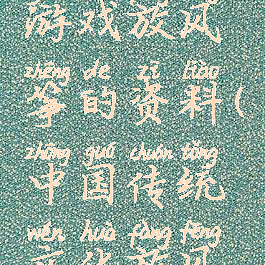 游戏放风
zhēng de zī liào
筝的资料(
zhōng guó chuán tǒng
中国传统
wén huà fàng fēng
文化放风